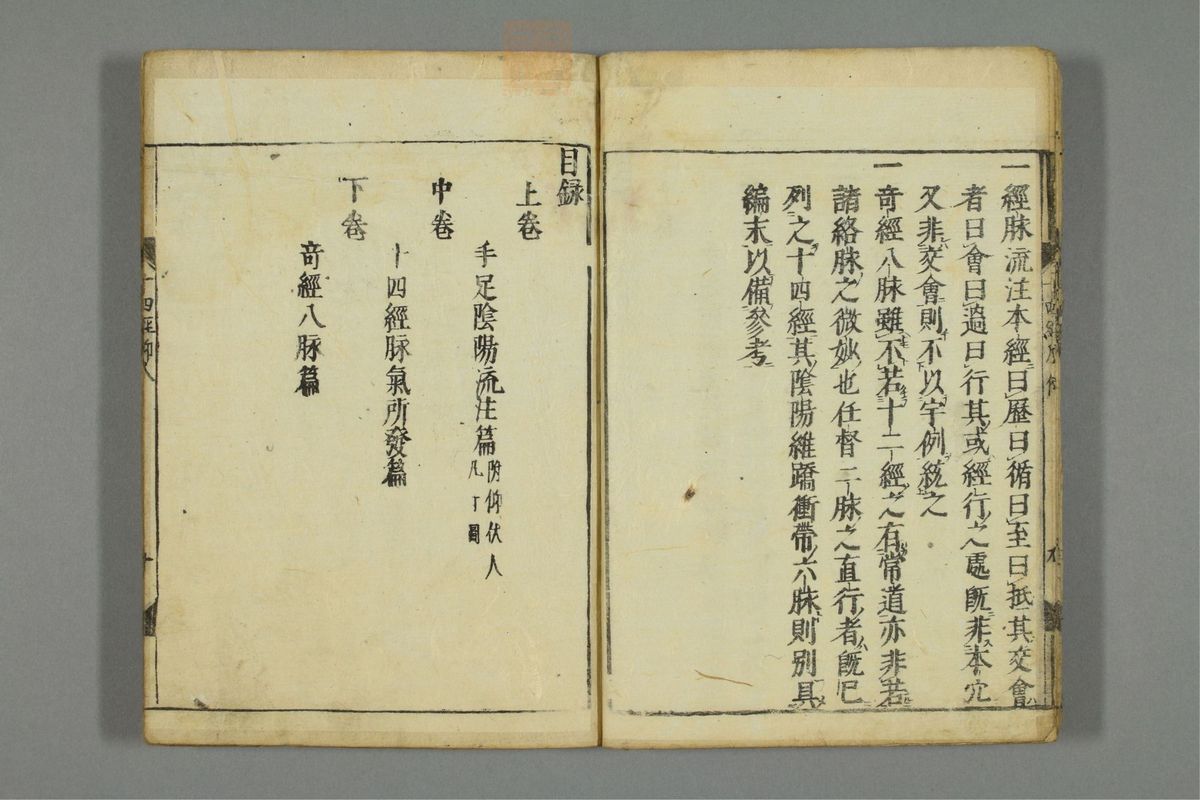 一經脉流注本經曰歷曰循曰至曰抵其交會
者曰會曰過曰行其或經行之處既非本穴
又非交會則不以字例統之
一奇經八脉雖不若十二經之有常道亦非若
諸絡脉之微妙也任督二脉之直行者既已
列之十四經其陰陽維蹻衝帶六脉則別具
編末以備參考
目録
上卷
手足陰陽流注篇
仰伏人
圖
中卷
十四經脉氣所發篇
下卷
奇經八脉篇